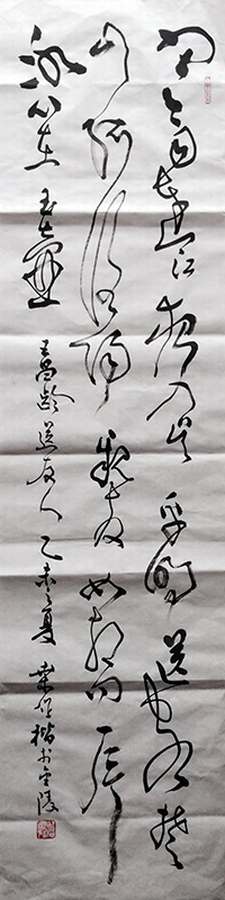 寒雨連江夜入吴平明送客楚
山孤洛陽親友如相问一片
冰心在玉壶 王昌齡送友人 乙未之夏 楷书金陵